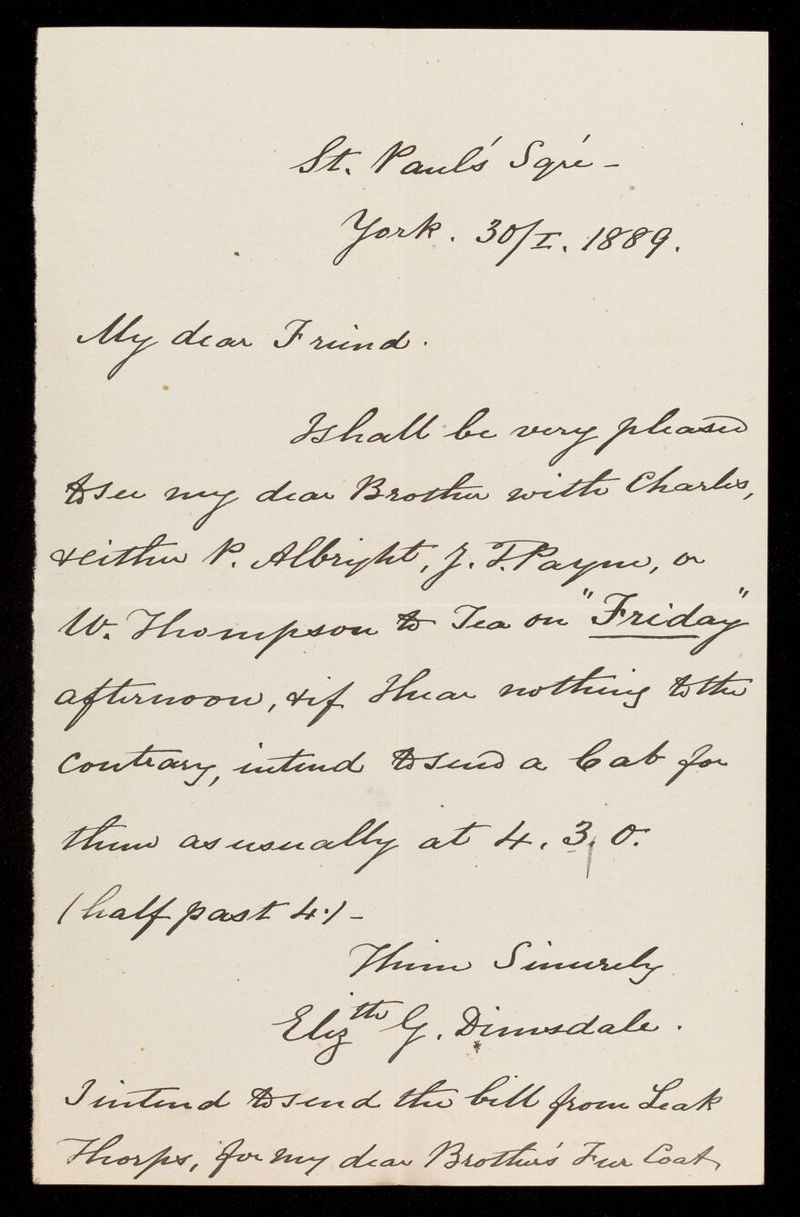 St. Paul's Sqre -
York. 30/I. 1889.
My dear Friend.
I shall be very pleased
to see my dear Brother with Charles,
& either P. Albright, J. T. Payne, or
W. Thompson to Tea on "Friday"
afternoon, & if I hear nothing to the
contrary, intend to send a Cab for
them as usually at 4. 3. 0.
(half past 4.) -
Thine Sincerely
Elizth G. Dimsdale.
I intend to send the bill from Leak
Thorps, for my dear Brother's Fur Coat,